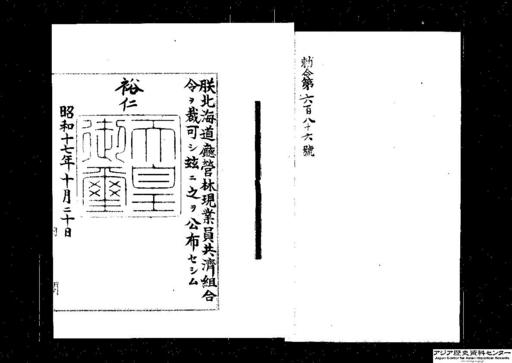 勅令第六百八十六號
朕北海道廳營林現業員共濟組合
令ヲ裁可シ玆ニ之ヲ公布セシム
裕仁
天皇
御璽
昭和十七年十月二十日
アジア歴史資料センター
Japan Center for Asian Historical Records